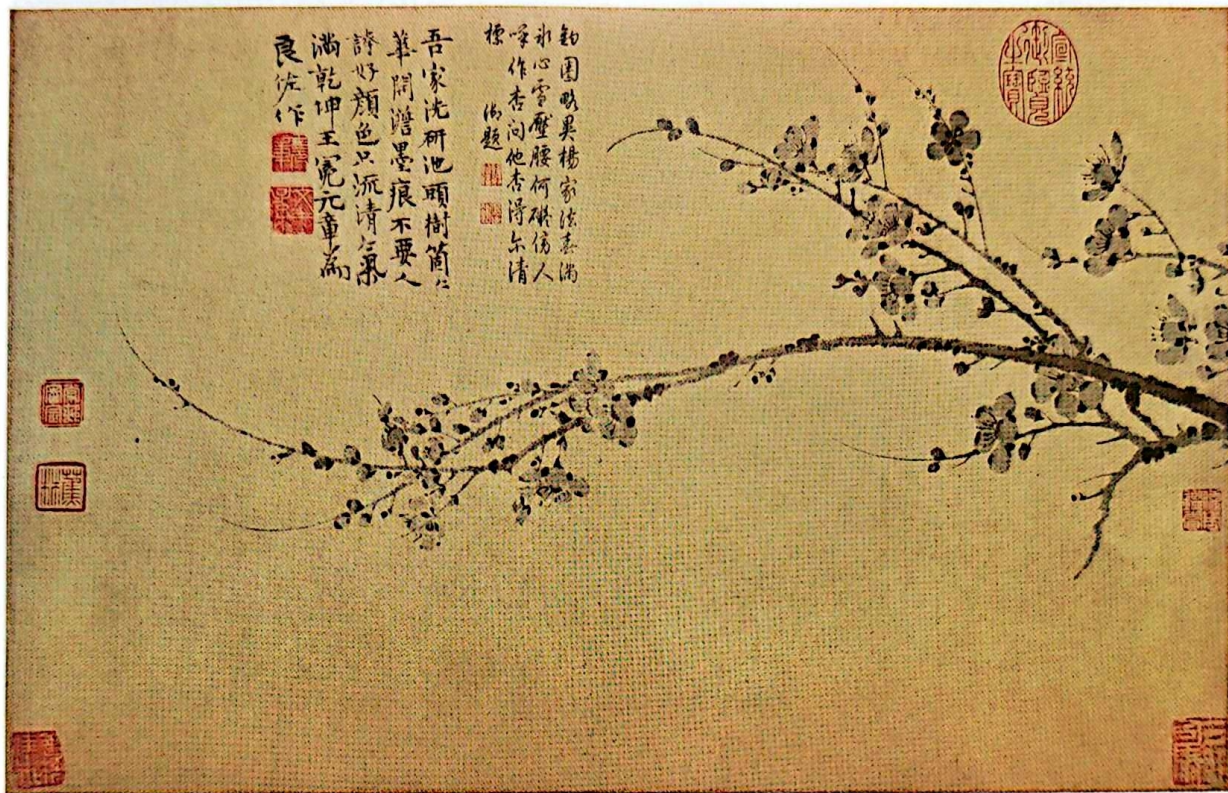 宣統
御覽
之寶
鈎圈略異楊家法春滿
冰心雪壓腰何礙傍人
喚作杏問他杏得尔清
標
御題
吾家洗研池頭樹箇〻
華開澹墨痕不要人
誇好顏色只流清氣
滿乾坤王冕元章為
良佐作
蕉林